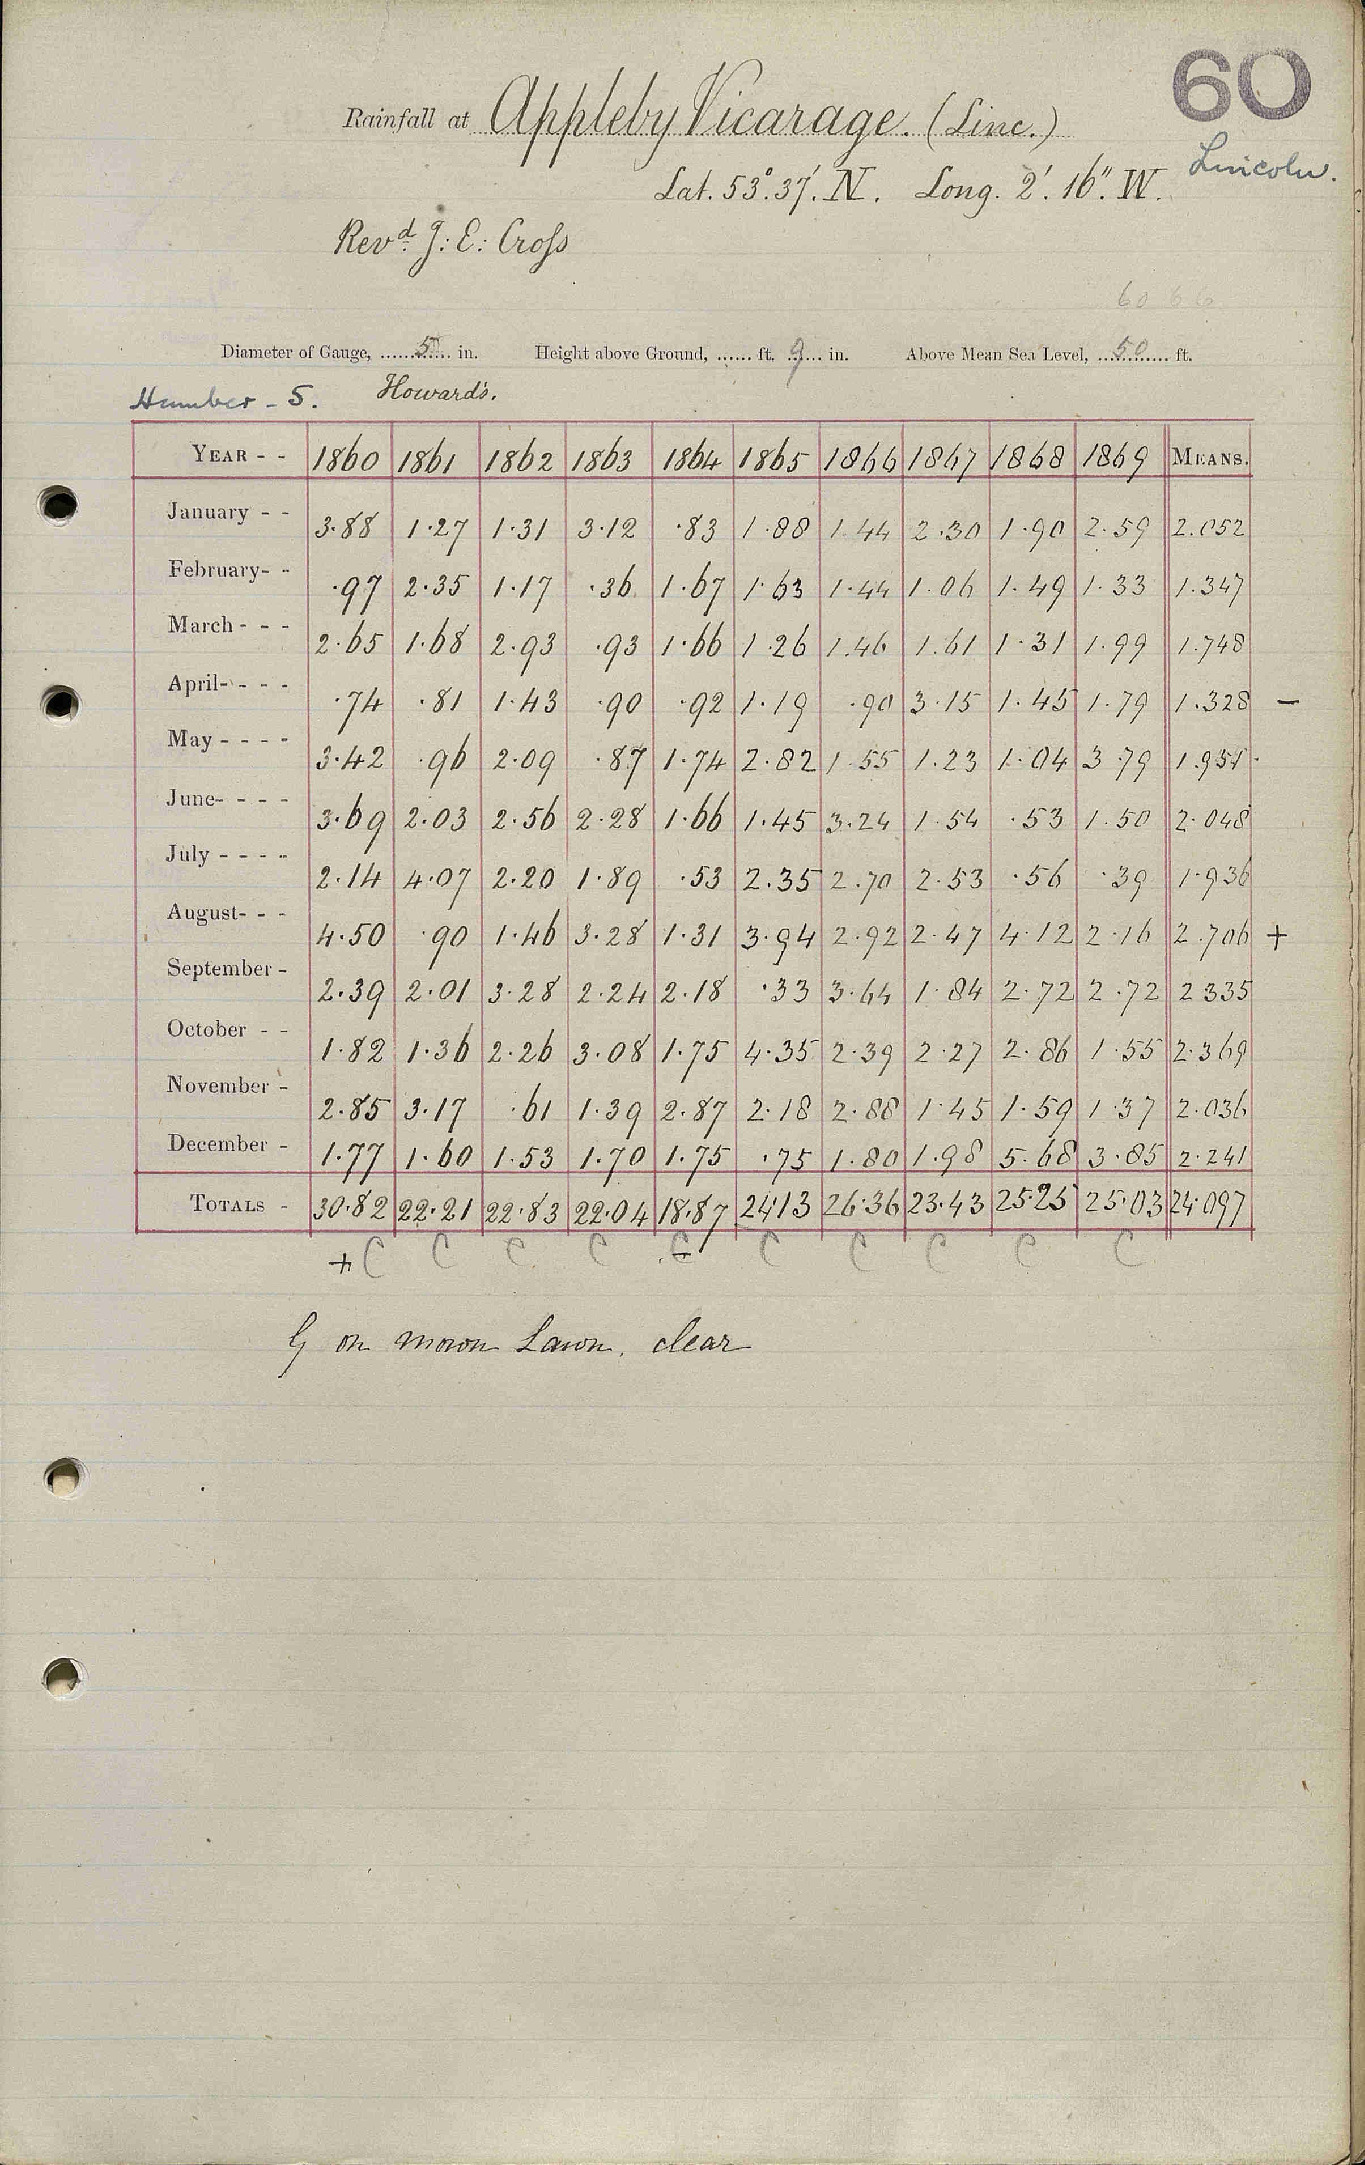 60
Rainfall at Appleby Vicarage. (Linc.)
Lincoln.
Lat. 53°. 37'. N. Long. 2'. 16". W.
Revd. J: E: Cross
60 66
Diameter of Gauge, 5 in. Height above Ground, ft. 9 in. Above Mean Sea Level, 50 ft.
Humber - 5. Howard's.
YEAR - - 1860 1861 1862 1863 1864 1865 1866 1867 1868 1869 MEANS.
January - - 3.88 1.27 1.31 3.12 .83 1.88 1.44 2.30 1.90 2.59 2.052
February- - .97 2.35 1.17 .36 1.67 1.63 1.44 1.06 1.49 1.33 1.347
March - - - 2.65 1.68 2.93 .93 1.66 1.26 1.46 1.61 1.31 1.99 1.748
April- - - - .74 .81 1.43 .90 .92 1.19 .90 3.15 1.45 1.79 1.328 -
May - - - - 3.42 .96 2.09 .87 1.74 2.82 1.55 1.23 1.04 3.79 1.951
June- - - - 3.69 2.03 2.56 2.28 1.66 1.45 3.24 1.54 .53 1.50 2.048
July - - - - 2.14 4.07 2.20 1.89 .53 2.35 2.70 2.53 .56 .39 1.936
August- - - 4.50 .90 1.46 3.28 1.31 3.94 2.92 2.47 4.12 2.16 2.706 +
September - 2.39 2.01 3.28 2.24 2.18 .33 3.64 1.84 2.72 2.72 2 335
October - - 1.82 1.36 2.26 3.08 1.75 4.35 2.39 2.27 2.86 1.55 2.369
November - 2.85 3.17 .61 1.39 2.87 2.18 2.88 1.45 1.59 1.37 2.036
December - 1.77 1.60 1.53 1.70 1.75 .75 1.80 1.98 5.68 3.85 2.241
TOTALS - 30.82 22.21 22.83 22.04 18.87 2413 26.36 23.43 25.25 25.03 24.097
+ C C C C - C C C C C C
G on mown Lawn. clear